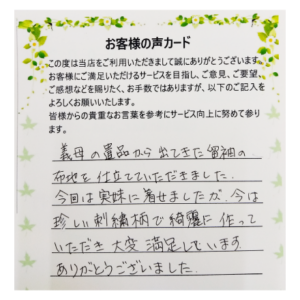 お客様の声カード
この度は当店をご利用いただきまして誠にありがとうございます。
お客様にご満足いただけるサービスを目指し、ご意見、ご要望、
ご感想などを賜りたく、お手数ではありますが、以下のご記入を
よろしくお願いいたします。
皆様からの貴重なお言葉を参考にサービス向上に努めて参りま
す。
義母の遺品から出てきた留袖の
布地を仕立ていただきました。
今回は実妹に着せましたが、今は
珍しい刺繍柄で綺麗に作って
いただき大変満足しています。
ありがとうございました。